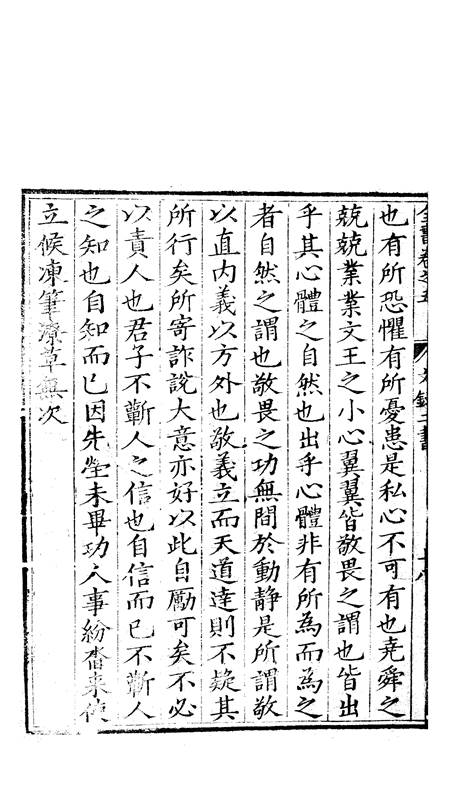 全書卷之五
文錄二書
十八
也有所恐懼有所憂患是私心不可有也堯舜之
兢兢業業文王之小心翼翼皆敬畏之謂也皆出
乎其心體之自然也出乎心體非有所為而為之
者自然之謂也敬畏之功無間於動靜是所謂敬
以直内義以方外也敬義立而天道達則不疑其
所行矣所寄詐說大意亦好以此自勵可矣不必
以責人也君子不蘄人之信也自信而已不蘄人
之知也自知而已因先塋未畢功人事紛沓来使
立候凍筆潦草無次